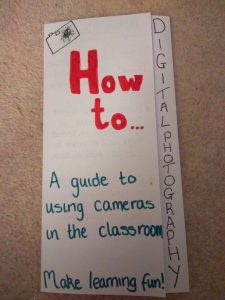 How
to...
A guide to
using cameras
in the classroom
Make learning fun!
DIGITAL PHOTOGRAPHY